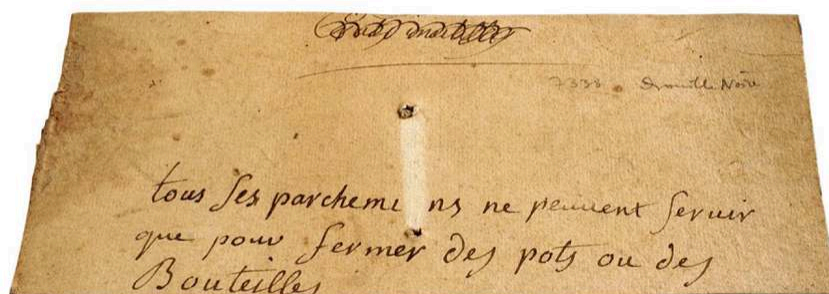 7338 Drouille Noire
tous ses parchemins ne peuuent seruir
que pour fermer des pots ou des
Bouteilles